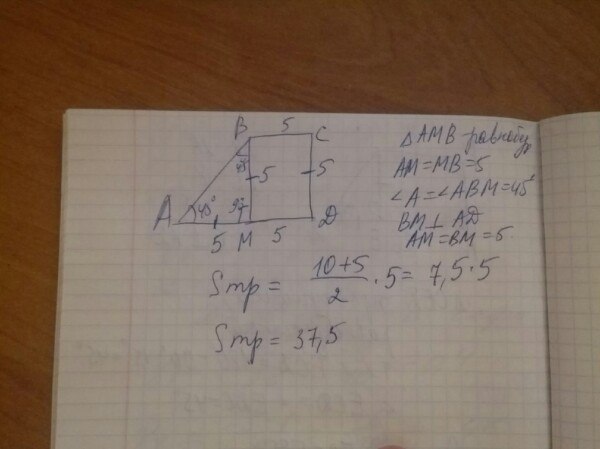 B 5 C
45° 5 5
A 45° 90° M D
5 5
Δ AMB равнобедр
AM = MB = 5
∠A = ∠ABM = 45°
BM ⊥ AD
AM = BM = 5
Sтр = (10+5)/2 · 5 = 7,5 · 5
Sтр = 37,5